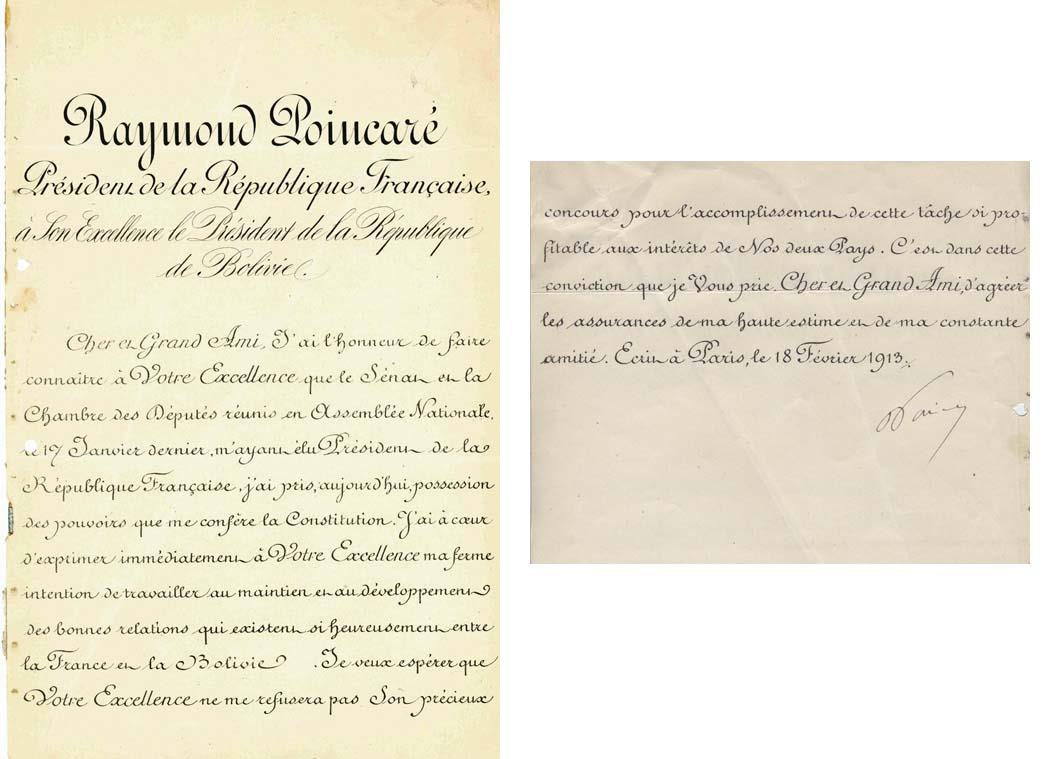 Raymond Poincaré
Président de la République Française,
à Son Excellence le Président de la République
de Bolivie.
Cher et Grand Ami, J'ai l'honneur de faire
connaître à Votre Excellence que le Sénat et la
Chambre des Députés réunis en Assemblée Nationale,
le 17 Janvier dernier, m'ayant élu Président de la
République Française, j'ai pris, aujourd'hui, possession
des pouvoirs que me confère la Constitution. J'ai à cœur
d'exprimer immédiatement à Votre Excellence ma ferme
intention de travailler au maintien et au développement
des bonnes relations qui existent si heureusement entre
la France et la Bolivie. Je veux espérer que
Votre Excellence ne me refusera pas Son précieux
concours pour l'accomplissement de cette tâche si pro-
fitable aux intérêts de Nos deux Pays. C'est dans cette
conviction que je Vous prie, Cher et Grand Ami, d'agréer
les assurances de ma haute estime et de ma constante
amitié. Ecrit à Paris, le 18 Février 1913.